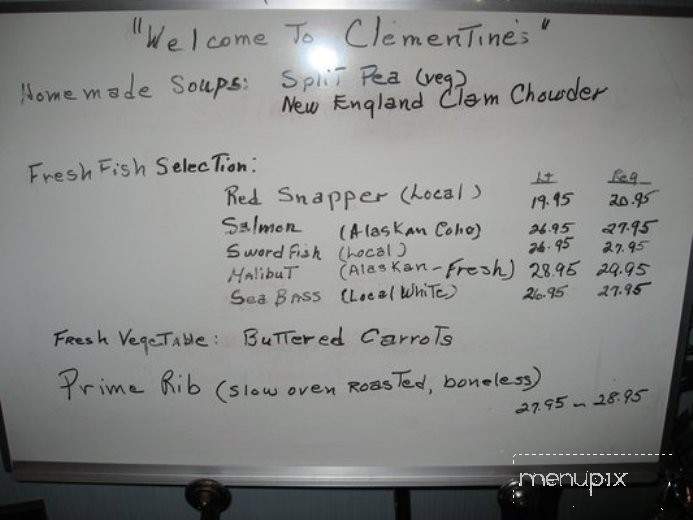 "Welcome To Clementine's"
Homemade Soups: Split Pea (veg)
New England Clam Chowder
Fresh Fish Selection: Lt Reg
Red Snapper (Local) 19.95 20.95
Salmon (Alaskan Coho) 26.95 27.95
Swordfish (Local) 26.95 27.95
Halibut (Alaskan-Fresh) 28.95 29.95
Sea Bass (Local White) 26.95 27.95
Fresh Vegetable: Buttered Carrots
Prime Rib (slow oven Roasted, boneless)
27.95 - 28.95
menupix